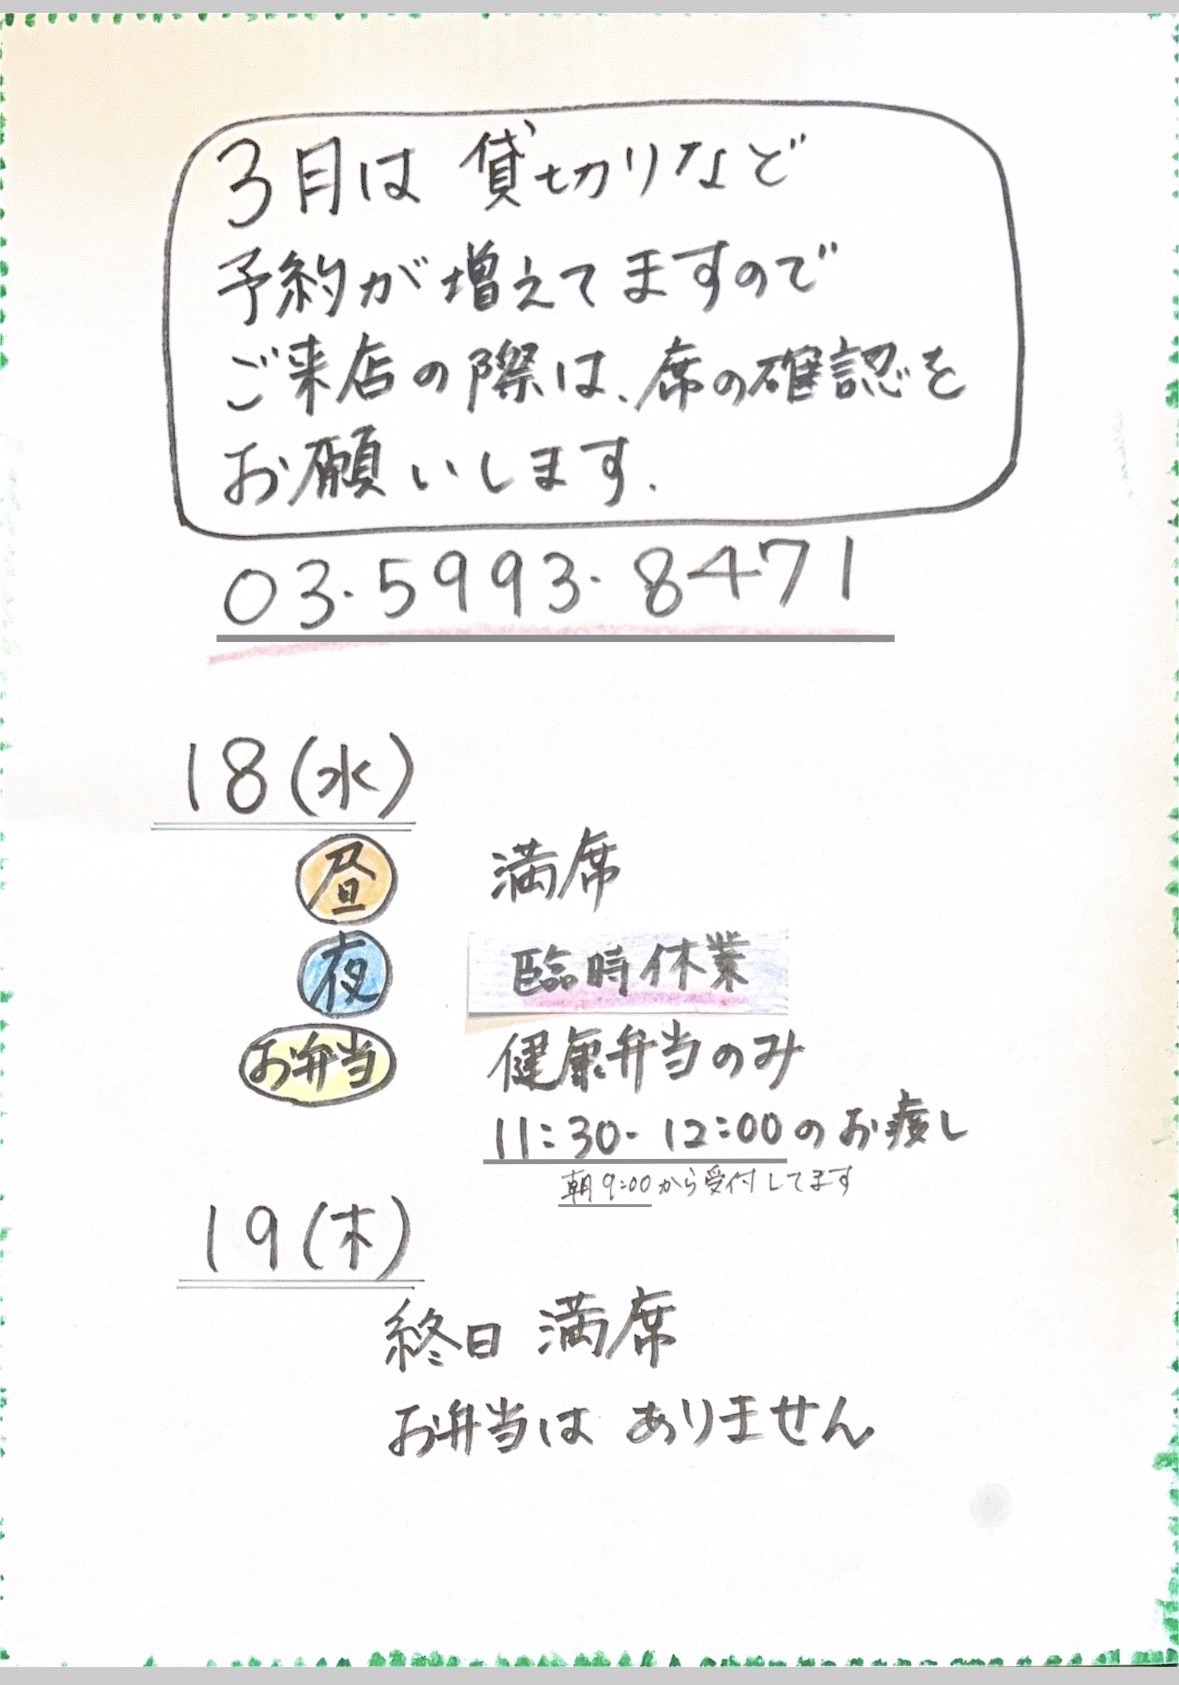 3月は 貸切りなど
予約が増えてますので
ご来店の際は、席の確認を
お願いします.
03.5993.8471
18(水)
昼 満席
夜 臨時休業
お弁当 健康弁当のみ
11:30-12:00のお渡し
朝9:00から受付してます
19(木)
終日 満席
お弁当は ありません